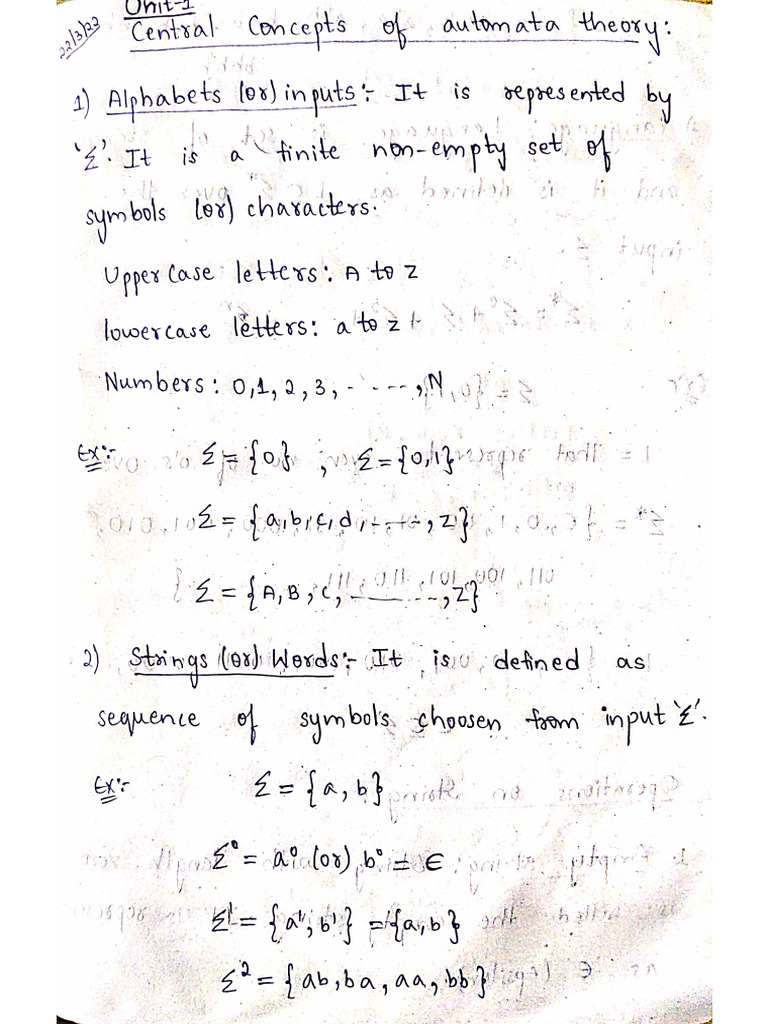 Unit-1
22/3/22
Central Concepts of automata theory:
1) Alphabets (or) inputs:- It is represented by
'Σ'. It is a finite non-empty set of
symbols (or) characters.
Uppercase letters: A to Z
lowercase letters: a to z
Numbers: 0,1,2,3,-----,N
Ex:- Σ={0} , Σ={0,1}
Σ={a,b,c,d,----,z}
Σ={A,B,C,------,Z}
2) Strings (or) Words:- It is defined as
sequence of symbols choosen from input 'Σ'.
Ex:- Σ={a,b}
Σ⁰= a⁰ (or) b⁰ = ϵ
Σ¹={a¹,b¹} ={a,b}
Σ²={ab,ba,aa,bb}